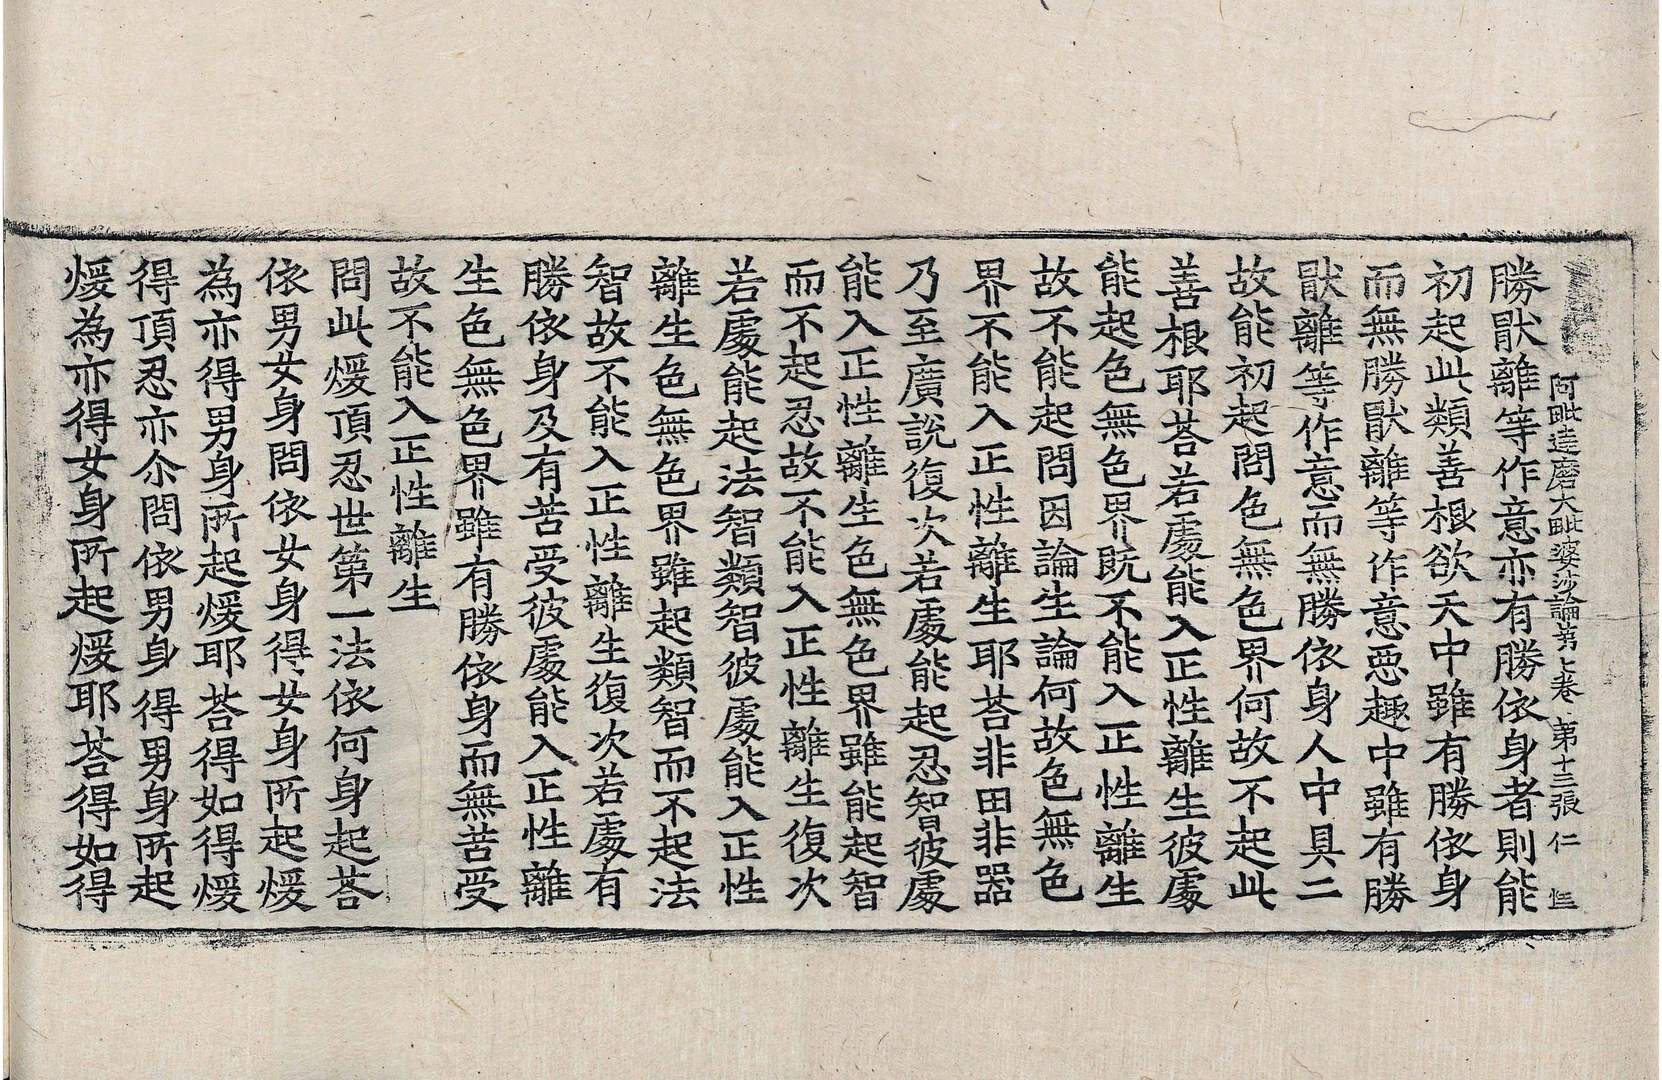 阿毗達磨大毗婆沙論第七卷 第十三張 仁
勝猒離等作意亦有勝依身者則能
初起此類善根欲天中雖有勝依身
而無勝猒離等作意惡趣中雖有勝
猒離等作意而無勝依身人中具二
故能初起問色無色界何故不起此
善根耶荅若處能入正性離生彼處
能起色無色界既不能入正性離生
故不能起問因論生論何故色無色
界不能入正性離生耶荅非田非器
乃至廣說復次若處能起忍智彼處
能入正性離生色無色界雖能起智
而不起忍故不能入正性離生復次
若處能起法智類智彼處能入正性
離生色無色界雖起類智而不起法
智故不能入正性離生復次若處有
勝依身及有苦受彼處能入正性離
生色無色界雖有勝依身而無苦受
故不能入正性離生
問此煖頂忍世第一法依何身起荅
依男女身問依女身得女身所起煖
為亦得男身所起煖耶荅得如得煖
得頂忍亦尒問依男身得男身所起
煖為亦得女身所起煖耶荅得如得